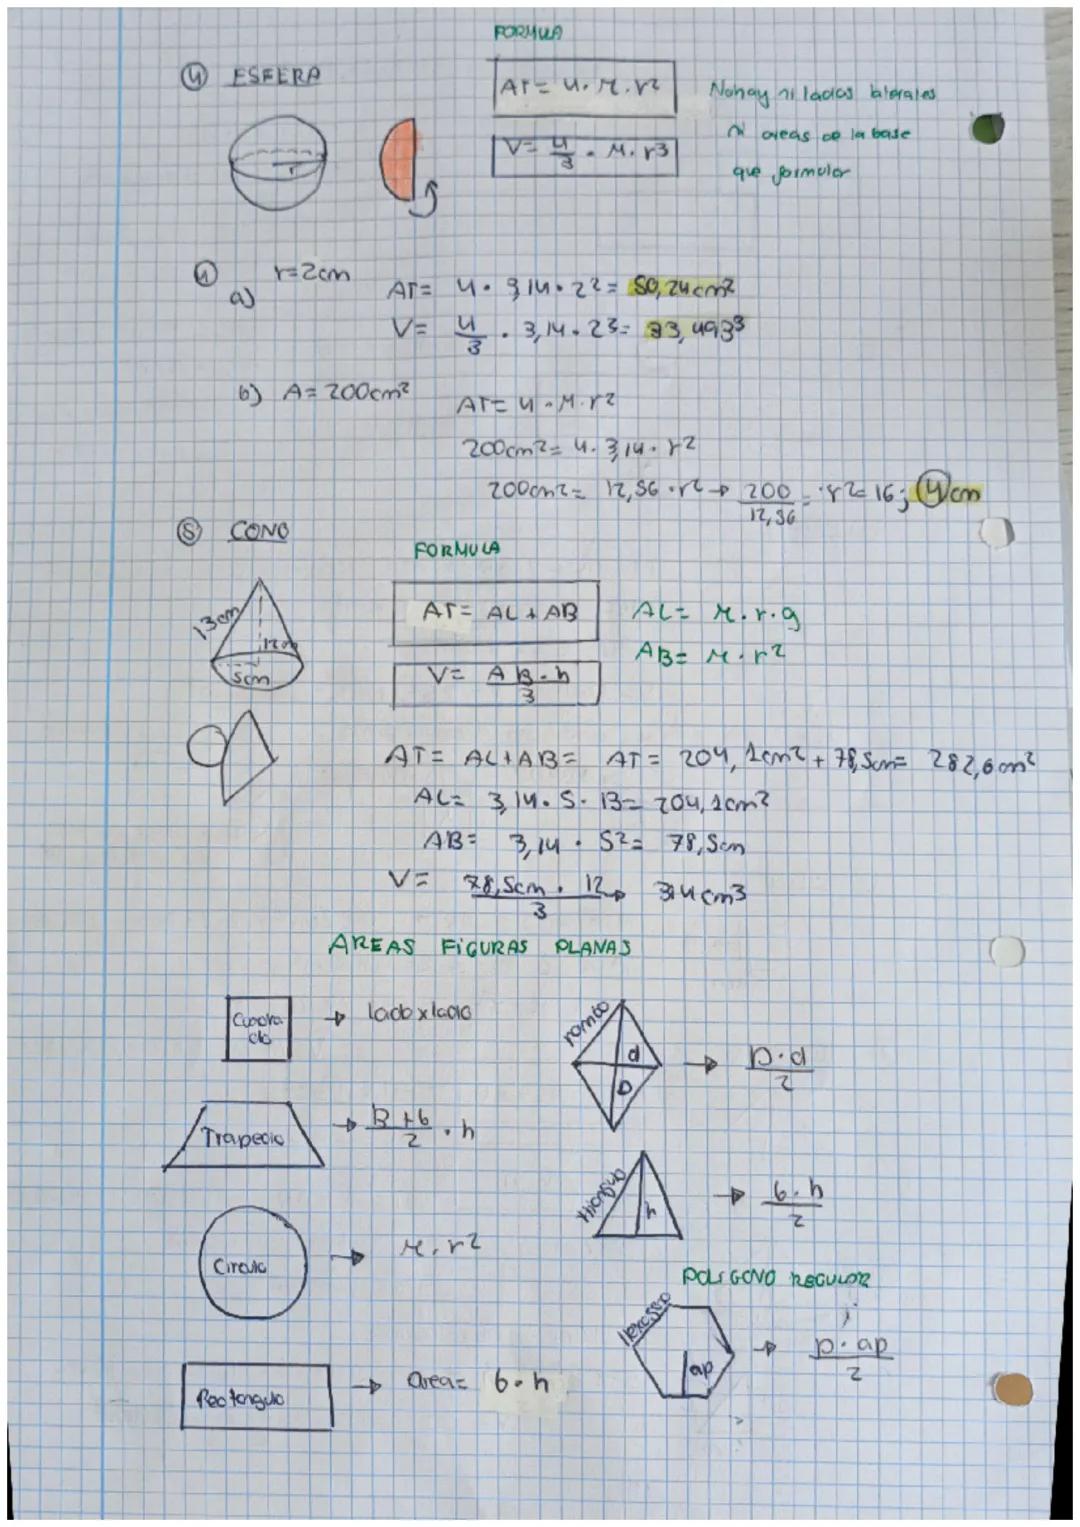 FORMULA
④ ESFERA
AT = 4 · π · r²
No hay ni lados laterales
ni areas de la base
que formular
V = 4/3 · π · r3
r
① a) r=2cm
AT= 4 · 3,14 · 2² = 50,24cm²
V= 4/3 · 3,14 · 2³ = 33,493³
b) A= 200cm²
AT= 4 · π · r²
200cm² = 4 · 3,14 · r²
200cm² = 12,56 · r² → 200/12,56 = r² = 16; 4cm
⑤ CONO
FORMULA
13cm
12cm
5cm
AT= AL + AB
AL= π · r · g
AB= π · r²
V= AB · h/3
AT= AL+AB= AT= 204,1cm² + 78,5cm= 282,6cm²
AL= 3,14 · 5 · 13= 204,1cm²
AB= 3,14 · 5² = 78,5cm
V= 78,5cm · 12/3 → 314cm3
AREAS FIGURAS PLANAS
Cuadra
do
→ lado x lado
rombo
d
D
→ D·d/2
Trapecio
→ B+b/2 · h
triangulo
h
→ b·h/2
Circulo
→ π · r²
POLIGONO REGULAR
Hexagono
ap
→ p·ap/2
Rectangulo
→ area= b·h